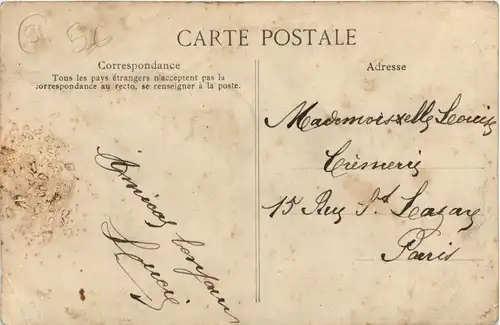 36
CARTE POSTALE
Correspondance
Tous les pays étrangers n'acceptent pas la
correspondance au recto, se renseigner à la poste.
Adresse
Mademoiselle Louise
Crèmerie
15 Rue St Lazare
Paris
Amical bonjour
Lucie